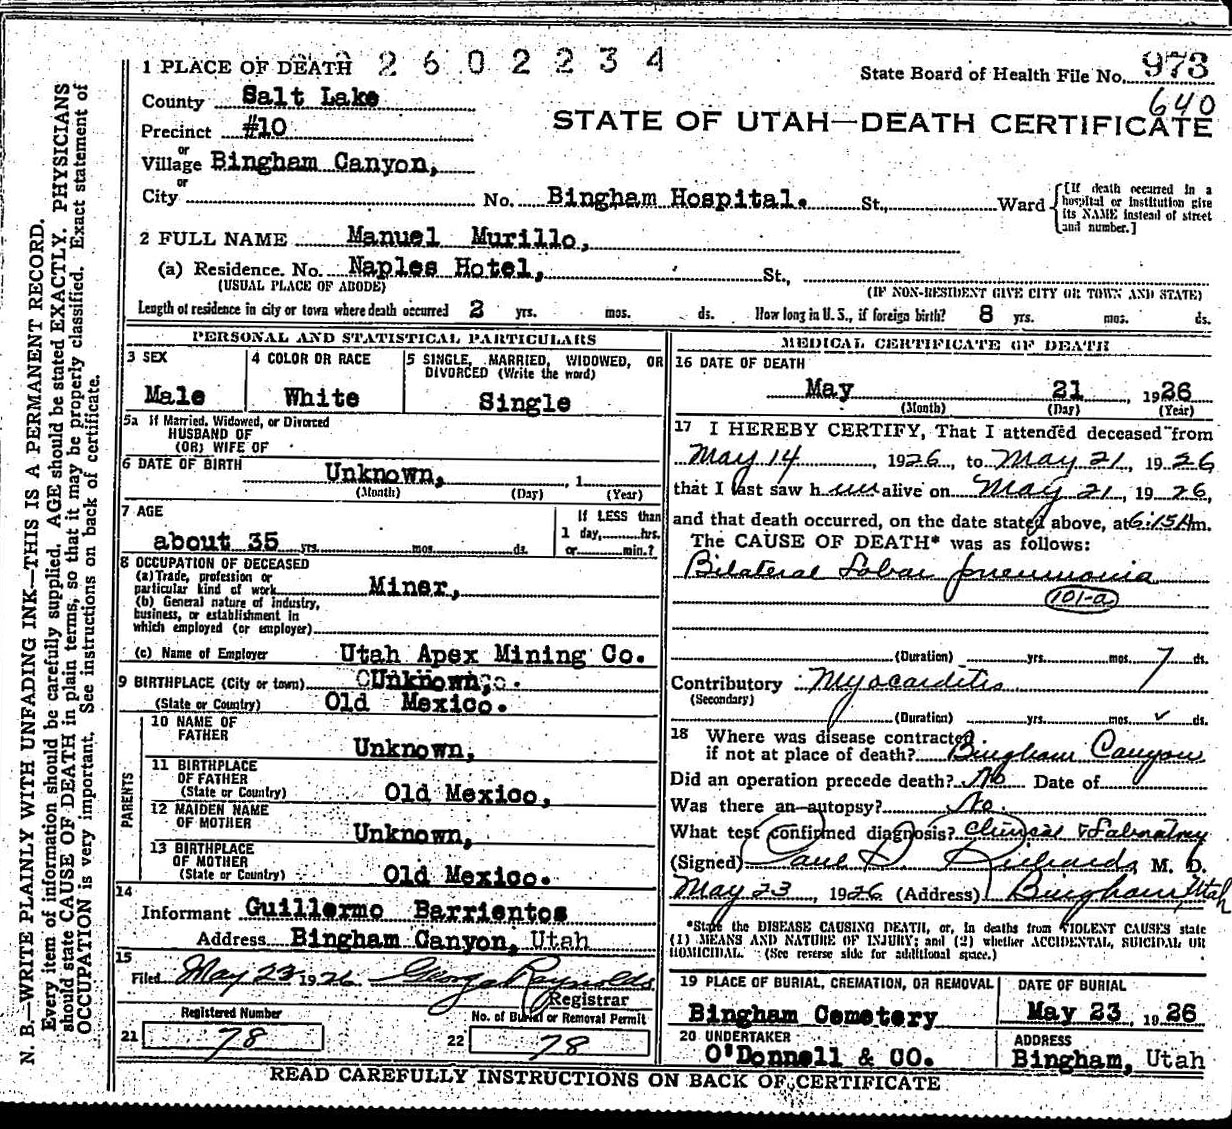 1 PLACE OF DEATH 2602234
State Board of Health File No. 973
640
County Salt Lake
STATE OF UTAH—DEATH CERTIFICATE
Precinct #10
or
Village Bingham Canyon,
or
City No. Bingham Hospital. St., Ward
[If death occurred in a
hospital or institution give
its NAME instead of street
and number.]
2 FULL NAME Manuel Murillo,
(a) Residence. No. Naples Hotel, St.,
(USUAL PLACE OF ABODE) (IF NON-RESIDENT GIVE CITY OR TOWN AND STATE)
Length of residence in city or town where death occurred 2 yrs. mos. ds. How long in U.S., if foreign birth? 8 yrs. mos. ds.
PERSONAL AND STATISTICAL PARTICULARS
3 SEX
Male
4 COLOR OR RACE
White
5 SINGLE, MARRIED, WIDOWED, OR
DIVORCED (Write the word)
Single
5a If Married, Widowed, or Divorced
HUSBAND OF
(OR) WIFE OF
6 DATE OF BIRTH Unknown, , 1
(Month) (Day) (Year)
7 AGE
about 35 yrs. mos. ds.
If LESS than
1 day, hrs.
or min.?
8 OCCUPATION OF DECEASED
(a) Trade, profession or
particular kind of work Miner,
(b) General nature of industry,
business, or establishment in
which employed (or employer)
(c) Name of Employer Utah Apex Mining Co.
9 BIRTHPLACE (City or town) Unknown,
(State or Country) Old Mexico.
PARENTS
10 NAME OF
FATHER Unknown,
11 BIRTHPLACE
OF FATHER
(State or Country) Old Mexico,
12 MAIDEN NAME
OF MOTHER Unknown,
13 BIRTHPLACE
OF MOTHER
(State or Country) Old Mexico.
14
Informant Guillermo Barrientos
Address Bingham Canyon, Utah
15
Filed May 23 1926 George Reynolds
Registrar
Registered Number
21 78
No. of Burial or Removal Permit
22 78
MEDICAL CERTIFICATE OF DEATH
16 DATE OF DEATH
May 21, 1926
(Month) (Day) (Year)
17 I HEREBY CERTIFY, That I attended deceased from
May 14, 1926, to May 21, 1926
that I last saw him alive on May 21, 1926,
and that death occurred, on the date stated above, at 6:15A m.
The CAUSE OF DEATH* was as follows:
Bilateral Lobar pneumonia
101-a
(Duration) yrs. mos. 7 ds.
Contributory Myocarditis
(Secondary)
(Duration) yrs. mos. ds.
18 Where was disease contracted
if not at place of death? Bingham Canyon
Did an operation precede death? No Date of
Was there an autopsy? No.
What test confirmed diagnosis? Clinical & Laboratory
(Signed) Paul S. Richards, M. D.
May 23, 1926 (Address) Bingham, Utah
*State the DISEASE CAUSING DEATH, or, in deaths from VIOLENT CAUSES state
(1) MEANS AND NATURE OF INJURY; and (2) whether ACCIDENTAL, SUICIDAL OR
HOMICIDAL. (See reverse side for additional space.)
19 PLACE OF BURIAL, CREMATION, OR REMOVAL
Bingham Cemetery
DATE OF BURIAL
May 23, 1926
20 UNDERTAKER
O'Donnell & CO.
ADDRESS
Bingham, Utah
READ CAREFULLY INSTRUCTIONS ON BACK OF CERTIFICATE
N. B.—WRITE PLAINLY WITH UNFADING INK—THIS IS A PERMANENT RECORD.
Every item of information should be carefully supplied. AGE should be stated EXACTLY. PHYSICIANS
should state CAUSE OF DEATH in plain terms, so that it may be properly classified. Exact statement of
OCCUPATION is very important. See instructions on back of certificate.